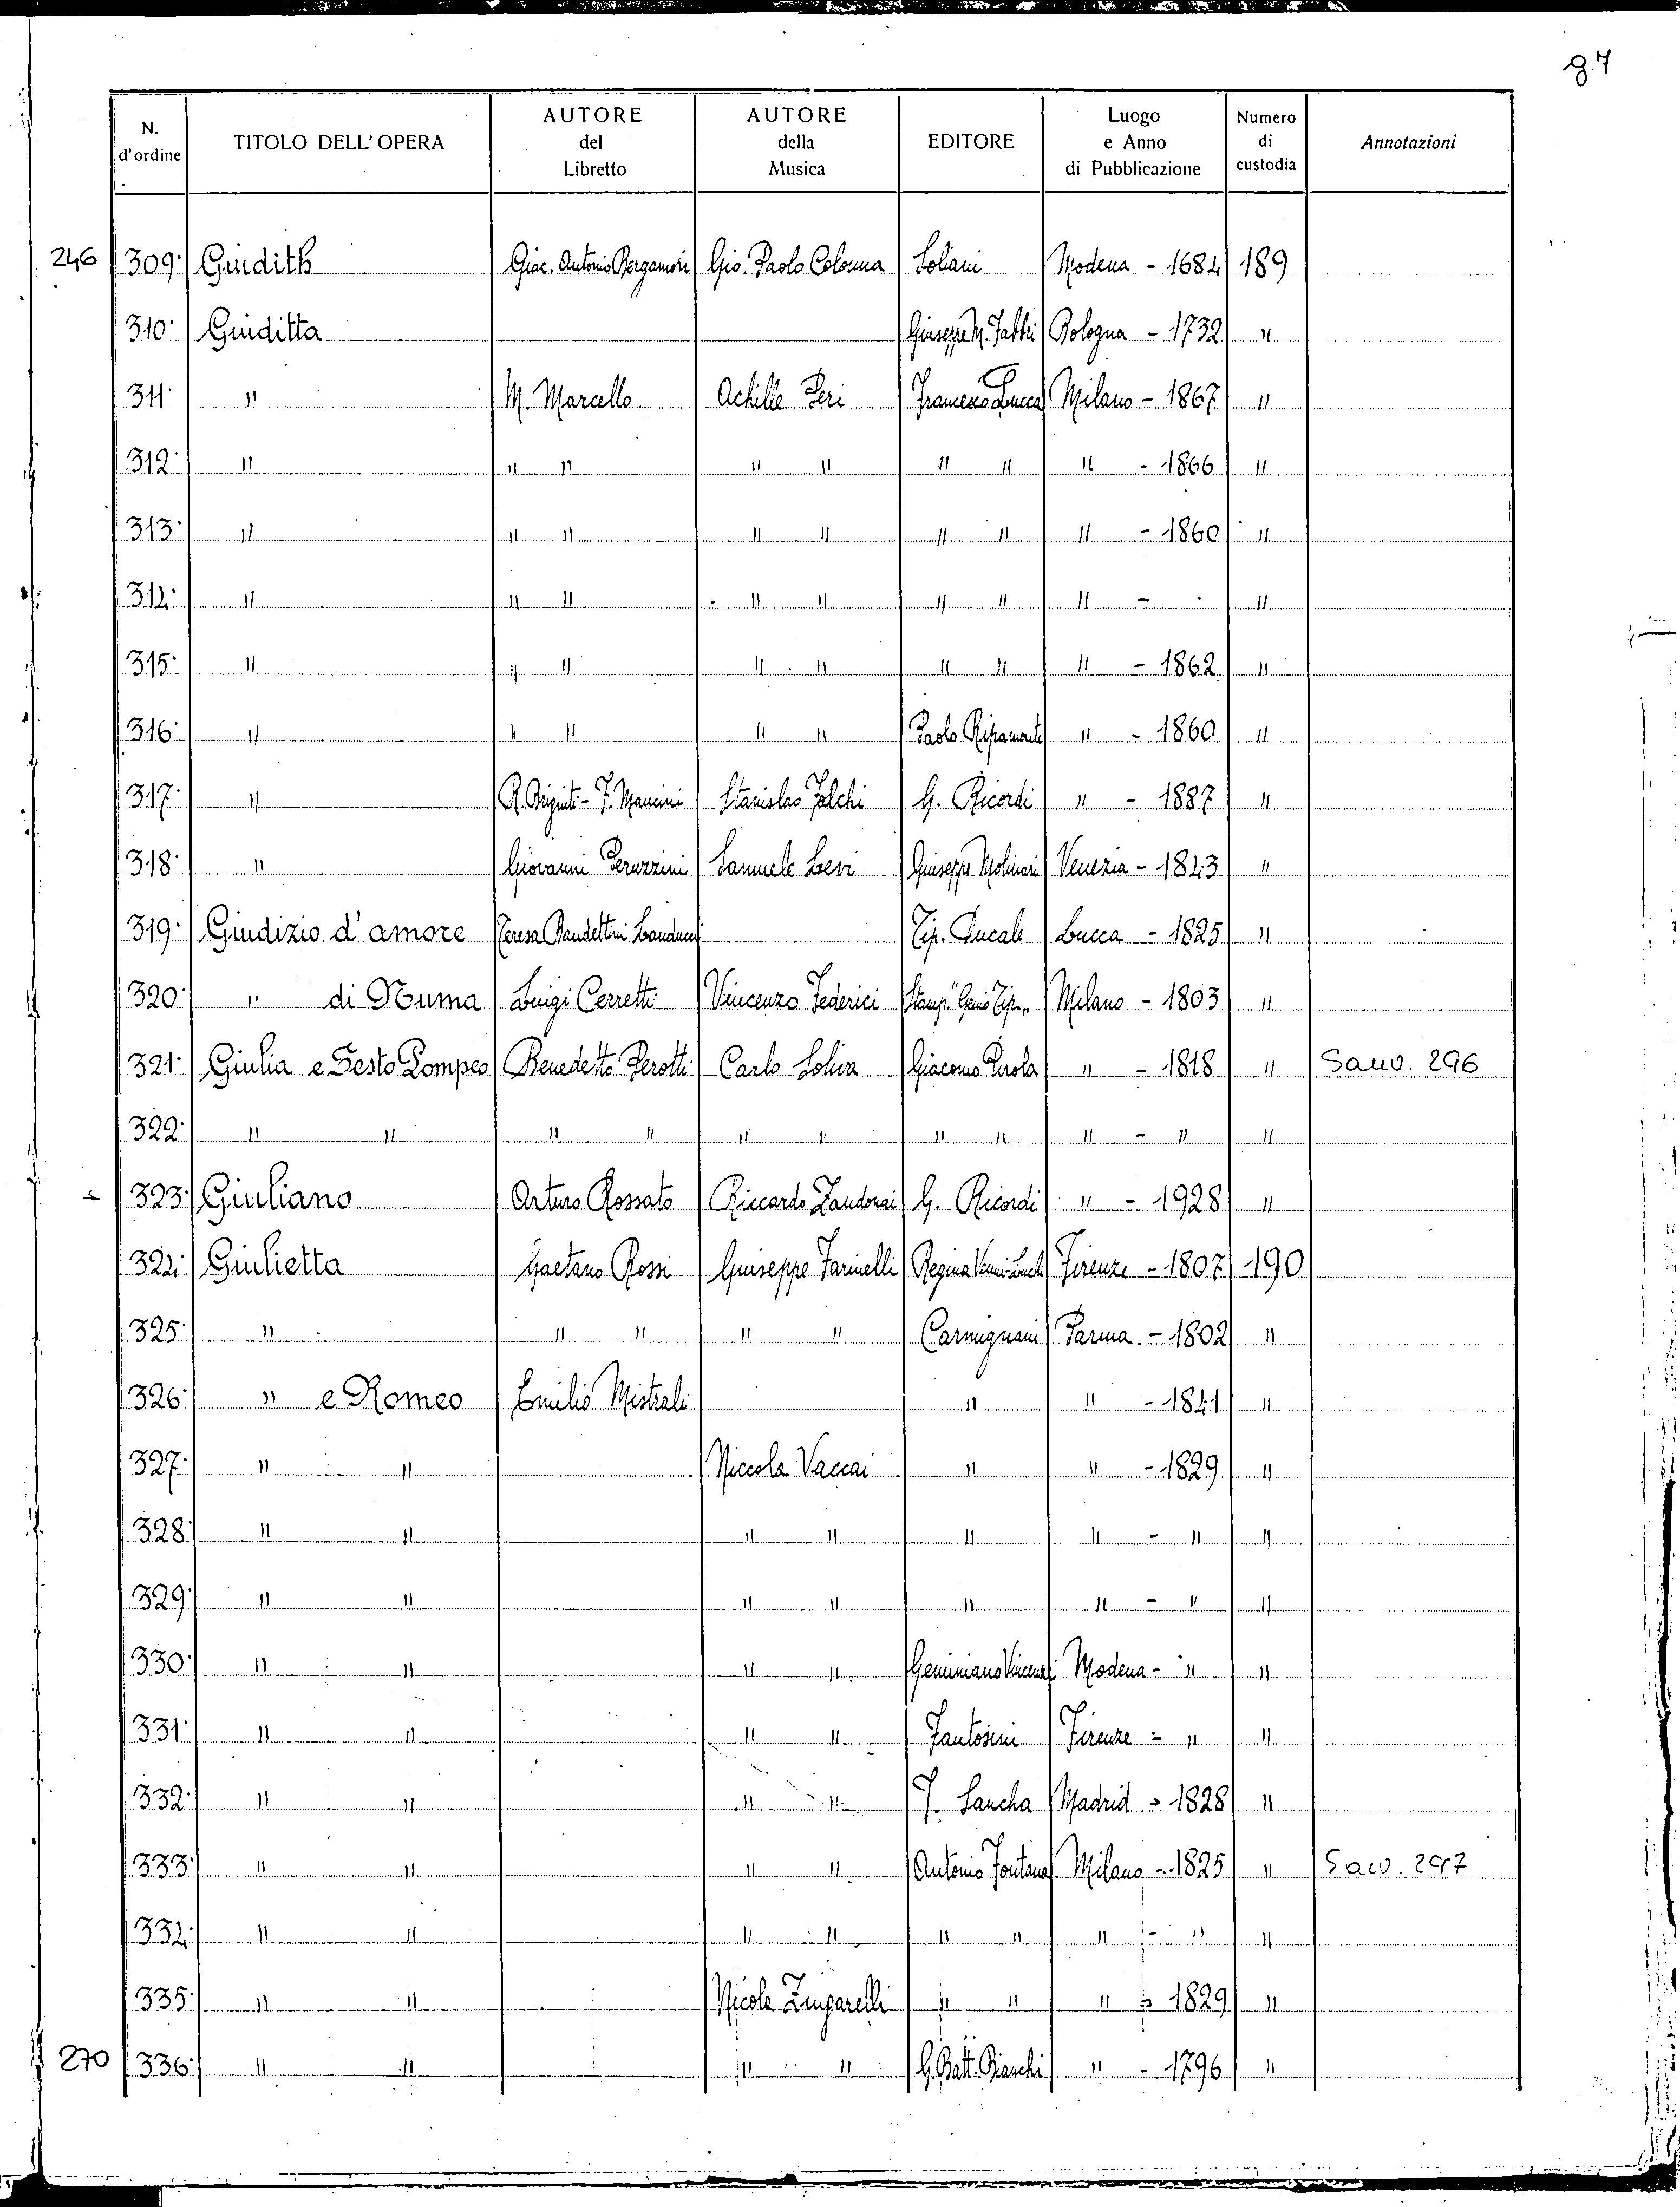 g. 7
N. d'ordine TITOLO DELL'OPERA AUTORE del Libretto AUTORE della Musica EDITORE Luogo e Anno di Pubblicazione Numero di custodia Annotazioni
246 309 Giudith Giac. Antonio Bergamori Gio. Paolo Colonna Soliani Modena - 1684 189
310 Giuditta Giuseppe M. Fabbri Bologna - 1732 "
311 " M. Marcello Achille Peri Francesco Lucca Milano - 1867 "
312 " " " " " " " " - 1866 "
313 " " " " " " " " - 1860 "
314 " " " " " " " " - "
315 " " " " " " " " - 1862 "
316 " " " " " Paolo Ripamonti " - 1860 "
317 " R. - F. Mancini Stanislao Falchi G. Ricordi " - 1887 "
318 " Giovanni Peruzzini Samuele Levi Giuseppe Molinari Venezia - 1843 "
319 Giudizio d'amore Teresa Bandettini Landucci Tip. Ducale Lucca - 1825 "
320 " di Numa Luigi Cerretti Vincenzo Federici Stamp. Genio Tip. Milano - 1803 "
321 Giulia e Sesto Pompeo Benedetto Perotti Carlo Soliva Giacomo Pirola " - 1818 " Sauv. 296
322 " " " " " " " " " - " "
323 Giuliano Arturo Rossato Riccardo Zandonai G. Ricordi " - 1928 "
324 Giulietta Gaetano Rossi Giuseppe Farinelli Regina Firenze - 1807 190
325 " " " " " Carmignani Parma - 1802 "
326 " e Romeo Emilio Mistrali " " - 1841 "
327 " " Niccola Vaccai " " - 1829 "
328 " " " " " " - " "
329 " " " " " " - " "
330 " " " " Geminiano Vincenzi Modena - " "
331 " " " " Fantosini Firenze - " "
332 " " " " J. Sancha Madrid - 1828 "
333 " " " " Antonio Fontana Milano - 1825 " Sauv. 297
334 " " " " " " " - " "
335 " " Nicola Zingarelli " " " - 1829 "
270 336 " " " " G. Batt. Bianchi " - 1796 "